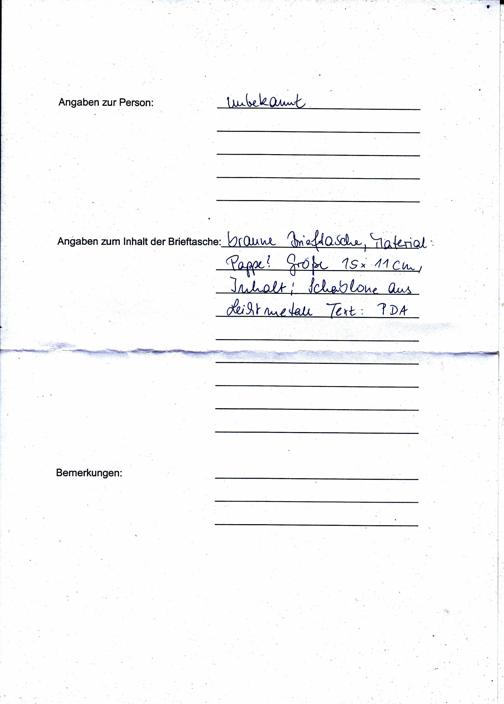 Angaben zur Person: unbekannt
Angaben zum Inhalt der Brieftasche: braune Brieftasche, Material:
Pappe! Größe 15 x 11 cm,
Inhalt; Schablone aus
Leichtmetall Text: PDA
Bemerkungen: